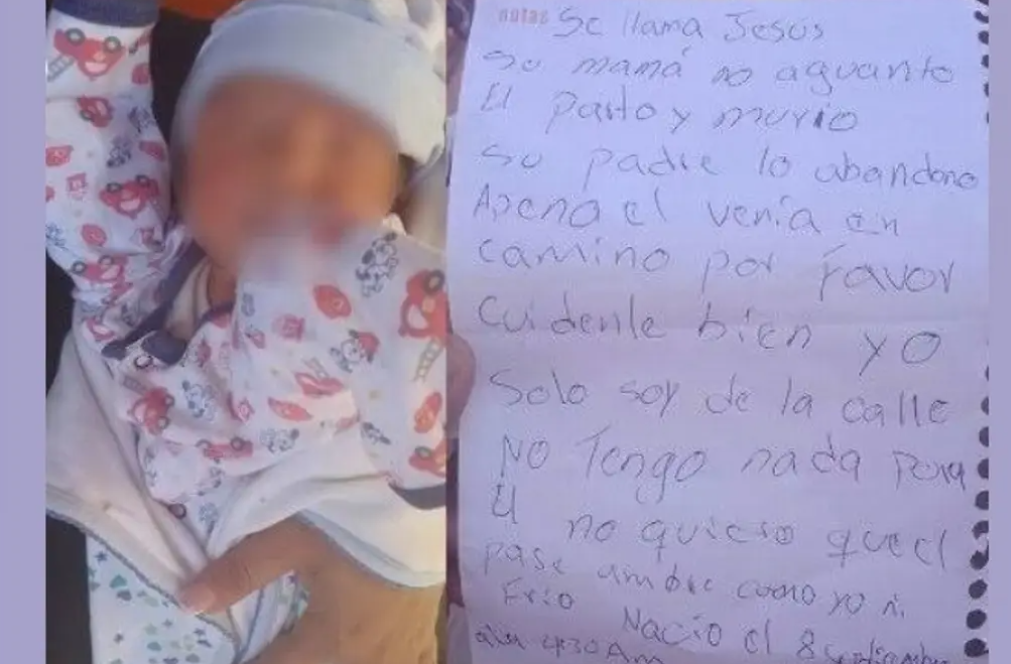 notas
Se llama Jesús
Su mamá no aguanto
El parto y murio
su padre lo abandono
Apena el venía en
camino por favor
Cuidenle bien yo
Solo soy de la calle
No Tengo nada para
El no quiero que el
pase ambre como yo ni
Frio Nacio el 8 septiembre
a la 4:30 Am